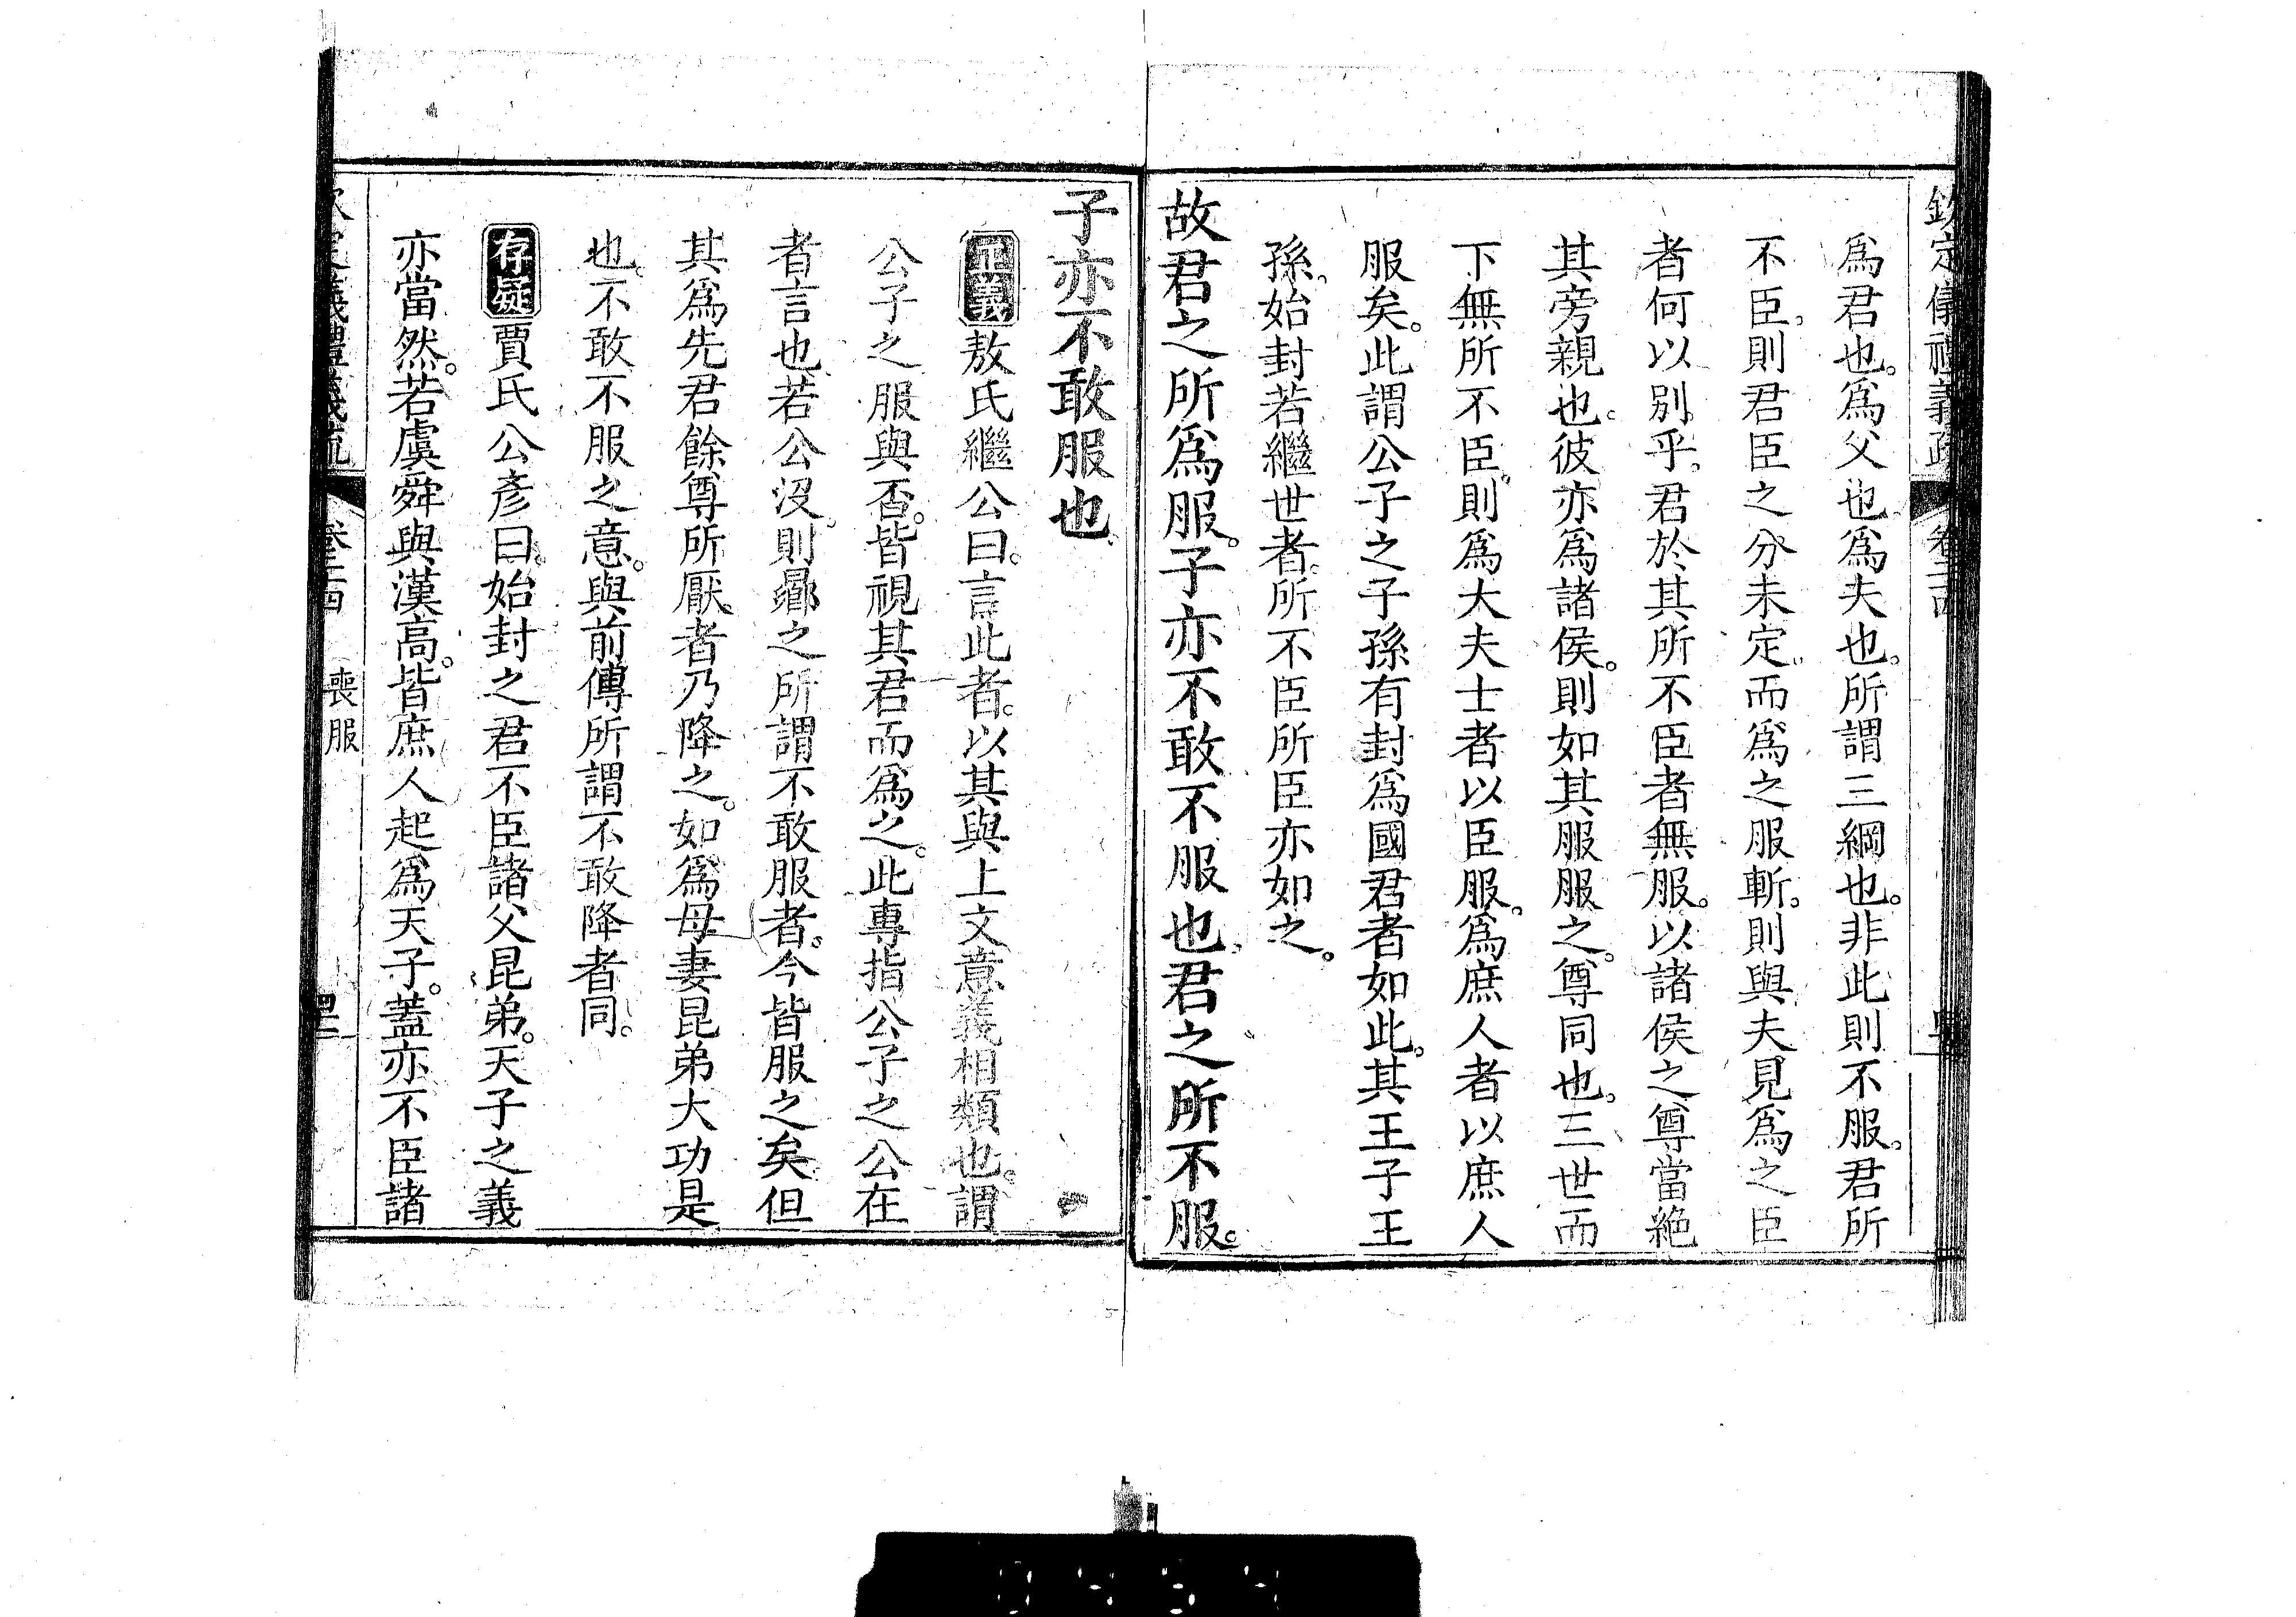 欽定儀禮義疏 卷二十四
爲君也。爲父也爲夫也。所謂三綱也。非此則不服。君所
不臣。則君臣之分未定。而爲之服斬。則與夫見爲之臣
者何以別乎。君於其所不臣者無服。以諸侯之尊當絶
其旁親也。彼亦爲諸侯。則如其服服之。尊同也。三世而
下無所不臣。則爲大夫士者以臣服。爲庶人者以庶人
服矣。此謂公子之子孫有封爲國君者如此。其王子王
孫。始封若繼世者。所不臣所臣亦如之。
故君之所爲服。子亦不敢不服也。君之所不服。
子亦不敢服也。
正義敖氏繼公曰。言此者。以其與上文意義相類也。謂
公子之服與否。皆視其君而爲之。此專指公子之公在
者言也若公沒。則曏之所謂不敢服者。今皆服之矣但
其爲先君餘尊所厭。者乃降之。如爲母妻昆弟大功是
也。不敢不服之意。與前傳所謂不敢降者同。
存疑賈氏公彥曰。始封之君不臣諸父昆弟。天子之義
亦當然。若虞舜與漢高。皆庶人起爲天子。蓋亦不臣諸
欽定儀禮義疏 卷二十四 喪服